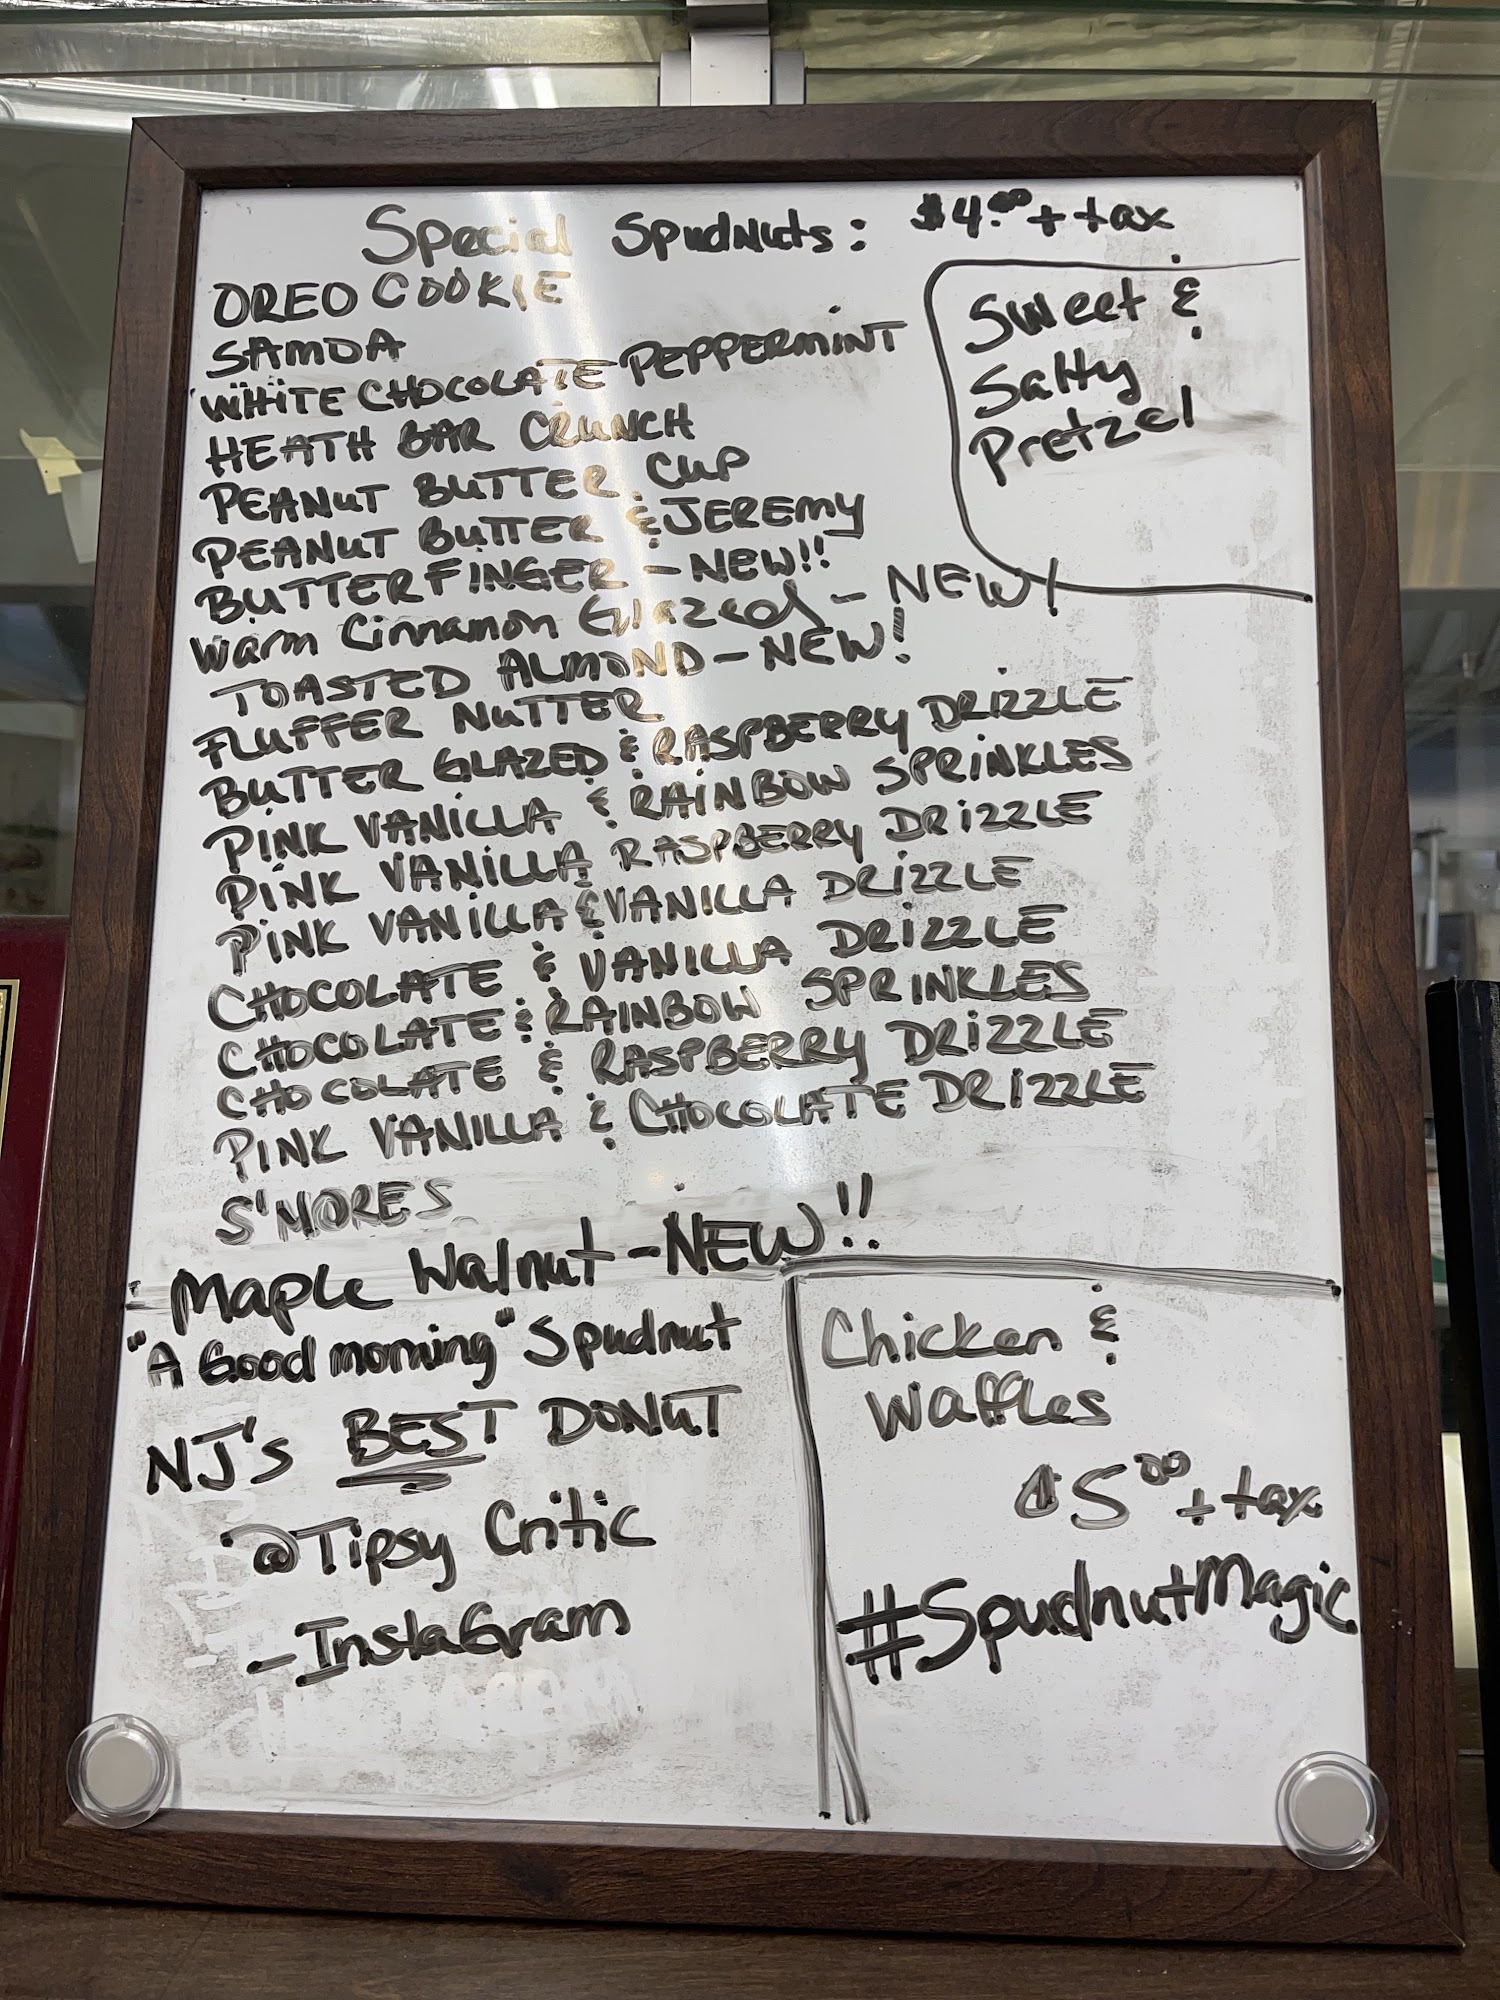 Special Spudnuts: $4.00 + tax
OREO COOKIE
SAMOA
WHITE CHOCOLATE PEPPERMINT
HEATH BAR CRUNCH
PEANUT BUTTER CUP
PEANUT BUTTER & JEREMY
BUTTERFINGER - NEW!!
Warm Cinnamon Glazed - NEW!
TOASTED ALMOND - NEW!
FLUFFER NUTTER
BUTTER GLAZED & RASPBERRY DRIZZLE
PINK VANILLA & RAINBOW SPRINKLES
PINK VANILLA RASPBERRY DRIZZLE
PINK VANILLA & VANILLA DRIZZLE
CHOCOLATE & VANILLA DRIZZLE
CHOCOLATE & RAINBOW SPRINKLES
CHOCOLATE & RASPBERRY DRIZZLE
PINK VANILLA & CHOCOLATE DRIZZLE
S'MORES
Maple Walnut - NEW!!
Sweet &
Salty
Pretzel
"A Good morning" Spudnut
NJ's BEST DONUT
@Tipsy Critic
- InstaGram
Chicken &
Waffles
$5.00 + tax
#SpudnutMagic